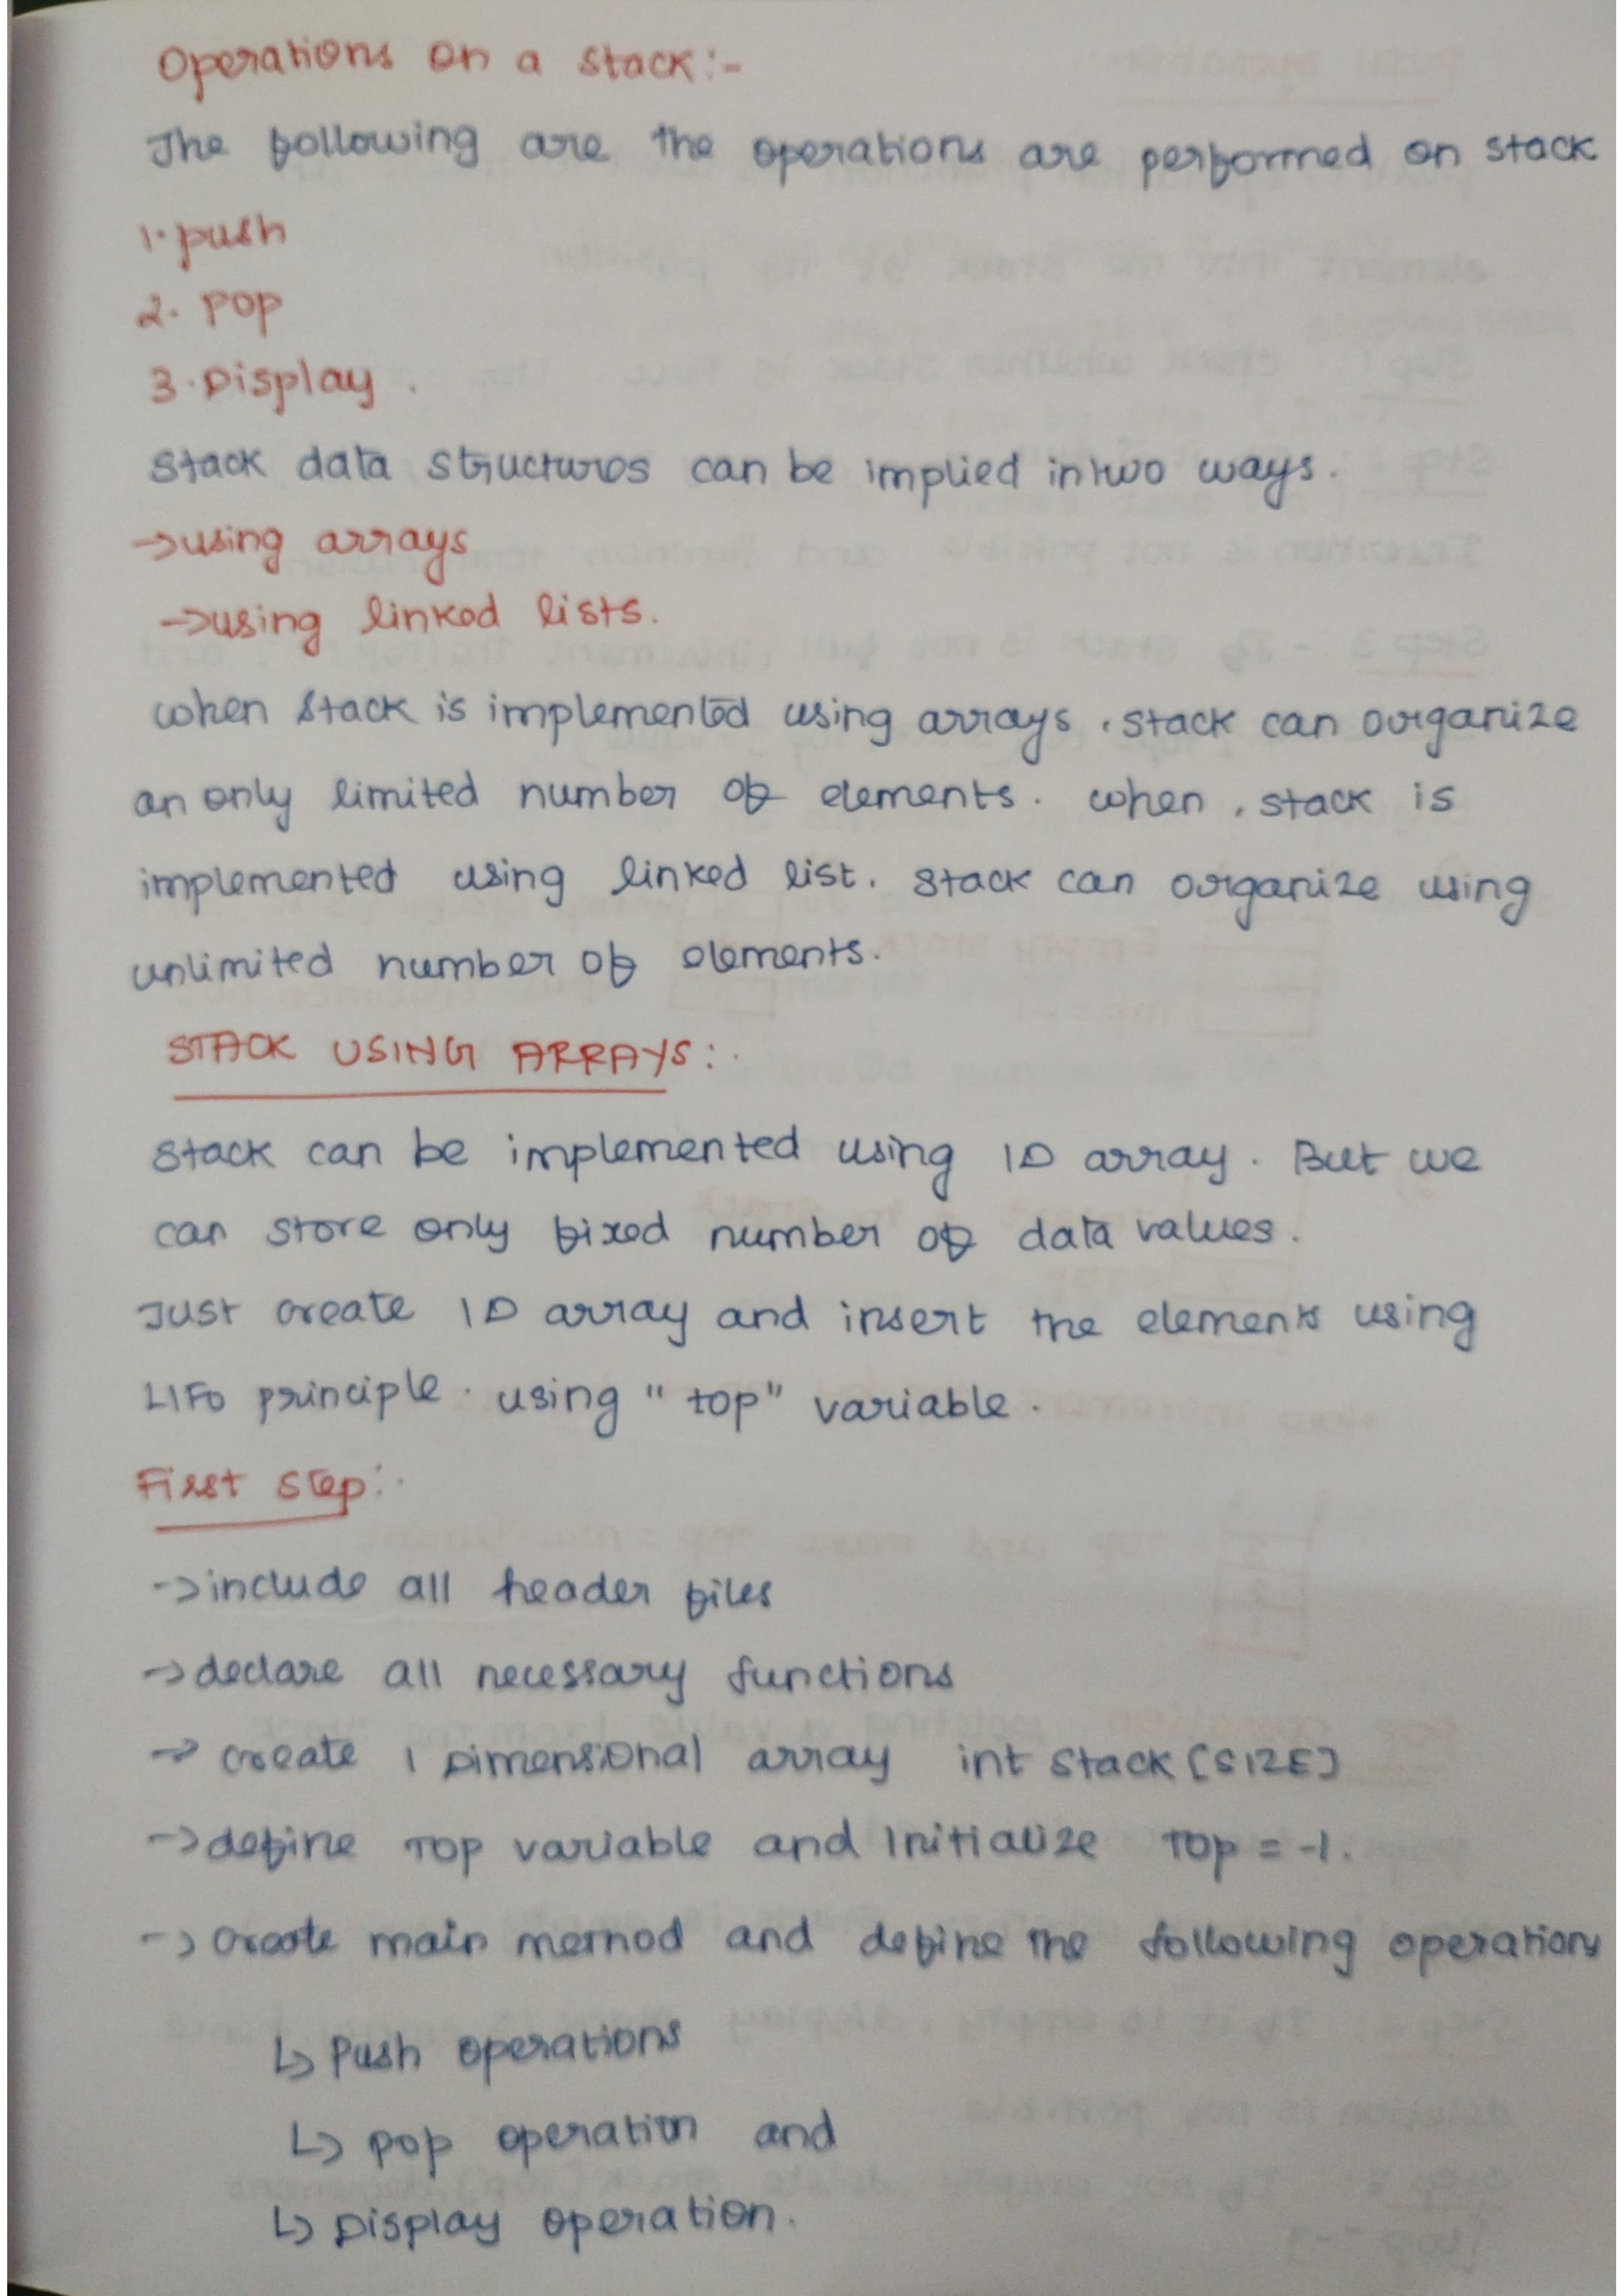 Operations on a stack:-
The following are the operations are performed on stack
1. push
2. pop
3. Display.
Stack data structures can be implied in two ways.
→ using arrays
→ using linked lists.
when stack is implemented using arrays, stack can organize
an only limited number of elements. when, stack is
implemented using linked list. stack can organize using
unlimited number of elements.
STACK USING ARRAYS:-
Stack can be implemented using 1D array. But we
can store only fixed number of data values.
Just create 1D array and insert the elements using
LIFO principle. using "top" variable.
First step:-
→ include all header files
→ declare all necessary functions
→ create 1 Dimensional array int Stack [SIZE]
→ define TOP variable and Initialize Top = -1.
→ create main method and define the following operations
↳ Push operations
↳ pop operation and
↳ Display operation.